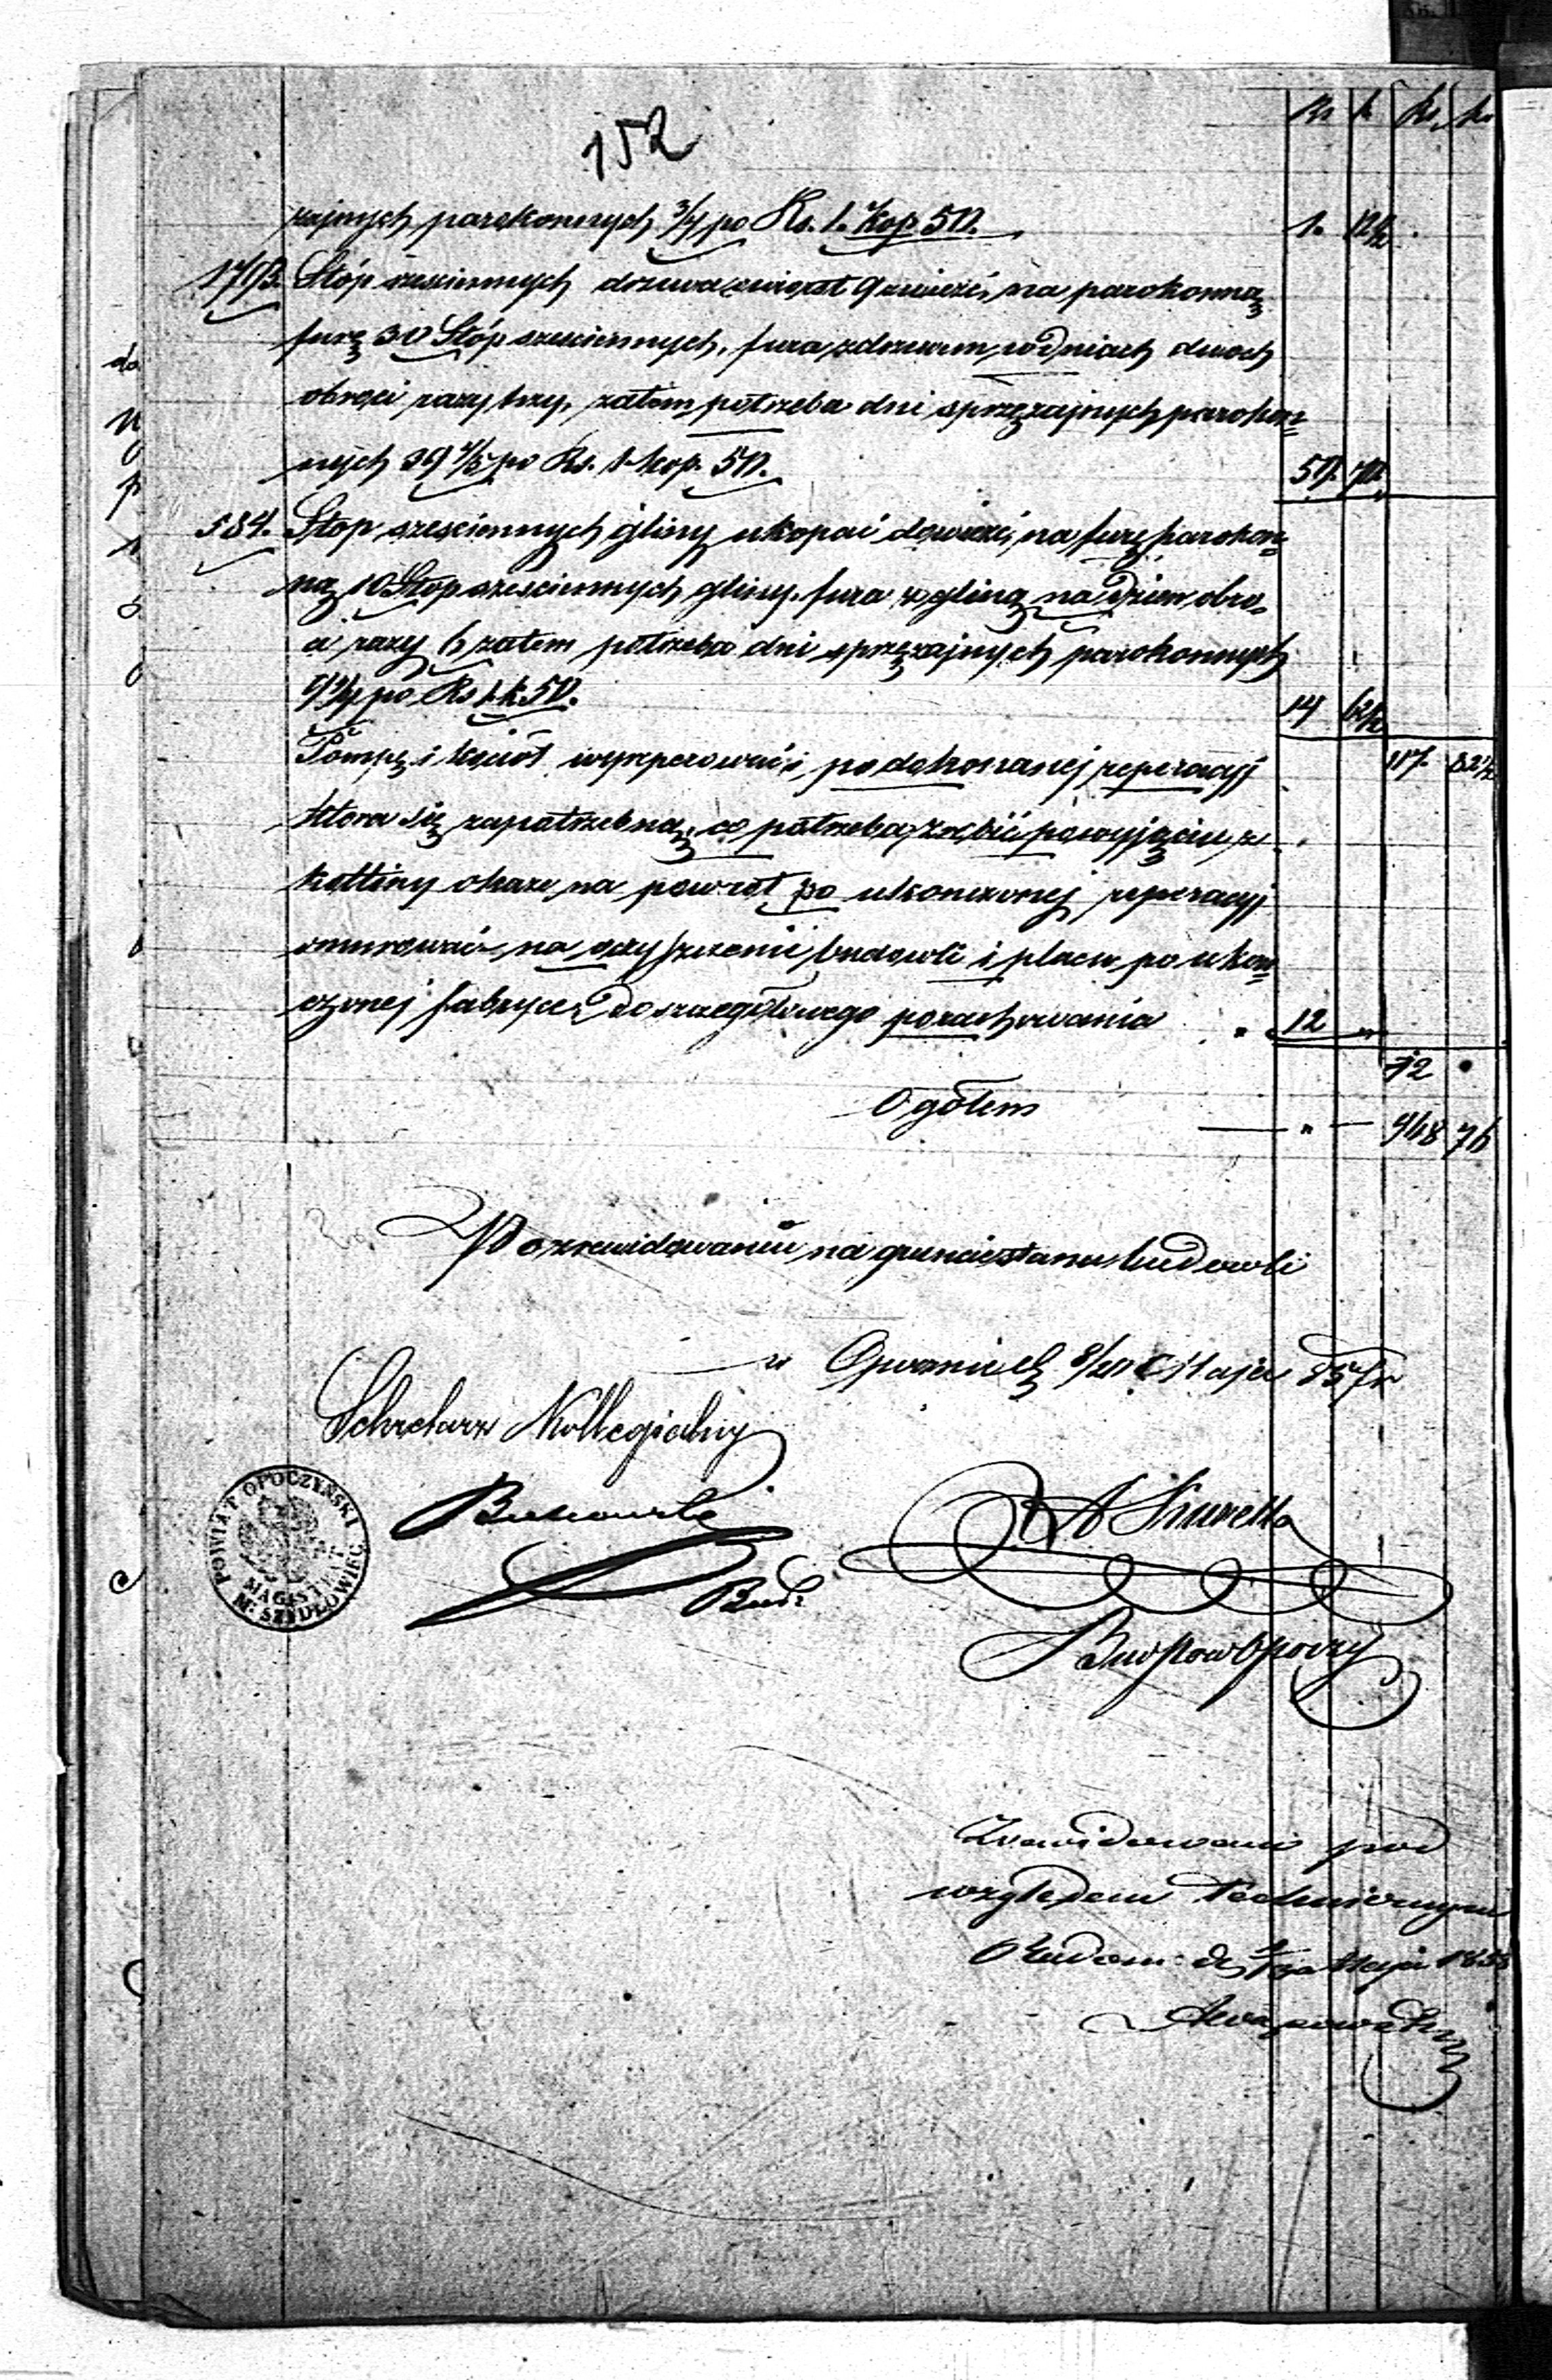 Rs k Rs ko
152
zajnych parokonnych 3/4 po Rs. 1. kop 50. 1. 12½
Stóp sześciennych drzewa mil 9 zwieźć, na parokonną
furę 30 Stóp sześciennych, fura z drzewem, w dniach dwoch
obróci razy trzy, zatem potrzeba dni sprzężajnych parokon=
nych 39 4/5 po Rs. 1 kop. 50. 59. 70
584. Stop sześciennych gliny ukopać dowieźć, na furę parokon=
ną 10 Stop sześciennych gliny. fura z gliną na dzień obro=
ci razy 6 zatem potrzeba dni sprzężajnych parokonnych
9¾ po Rs 1 k. 50. 14 62½
117. 82½
Pompę i kocioł wyreperować i po dokonanej reperacyj
ktora się zapotrzebną, co potrzeba zrobić po wyjęciu z
kotliny okaże na powrot po ukonczonej reperacyj
omurować na oczyszczenie budowli i placu po ukoń=
czonej fabryce do szczegółowego porachowania 12 „
12
Ogółem 948 76
Po zrewidowaniu na gruncie stanu budowli
w Opocznie d 8/20 Maja 857 r
Sekretarz Kollegialny
Bud.
Bud Pow Opoczy
POWIAT OPOCZYŃSKI
MAGISTRAT
M. SZYDŁOWIEC
Zrewidowano pod
względem Technicznym
Radom d. Maja 185